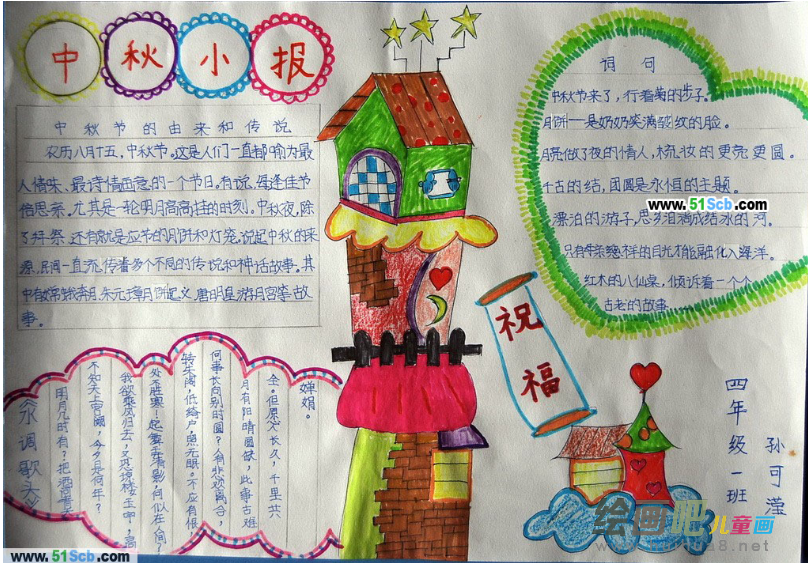 中秋小报
中秋节的由来和传说
农历八月十五，中秋节。这是人们一直都喻为最
人情味、最诗情画意的一个节日。有说，每逢佳节
倍思亲。尤其是一轮明月高高挂的时刻。中秋夜，除
了拜祭，还有就是应节的月饼和灯笼。说起中秋的来
源，民间一直流传着多个不同的传说和神话故事。其
中有嫦娥奔月、朱元璋月饼起义、唐明皇游月宫等故
事。
词句
中秋节来了，行着菊的步子。
月饼——是奶奶笑满皱纹的脸。
月亮做了夜的情人，梳妆的更亮更圆。
千古的结，团圆是永恒的主题。
www.51Scb.com
漂泊的游子，思乡泪滴成结冰的河。
只有母亲慈祥的目光才能融化入深洋。
红木的八仙桌，倾诉着一个个
古老的故事
祝福
水调歌头
明月几时有？把酒问青天
不知天上宫阙，今夕是何年？
我欲乘风归去，又恐琼楼玉宇，高
处不胜寒！起舞弄清影，何似在人间！
转朱阁，低绮户，照无眠。不应有恨
何事长向别时圆？人有悲欢离合，
月有阴晴圆缺，此事古难
全。但愿人长久，千里共
婵娟。
四年级一班
孙可滢
绘画吧儿童画
www.huihua8.net
www.51Scb.com
www.51Scb.com